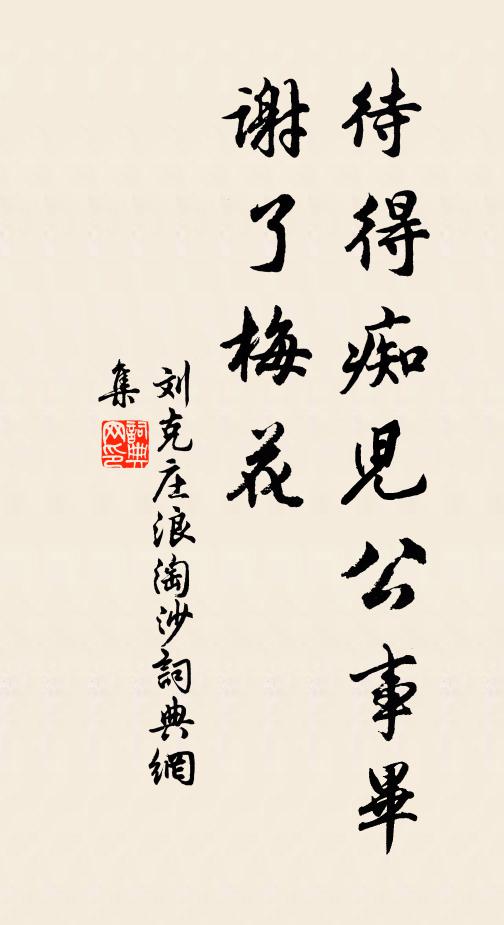 待得痴児公事畢
謝了梅花
刘克庄浪淘沙詞典網
集
詞典
网印